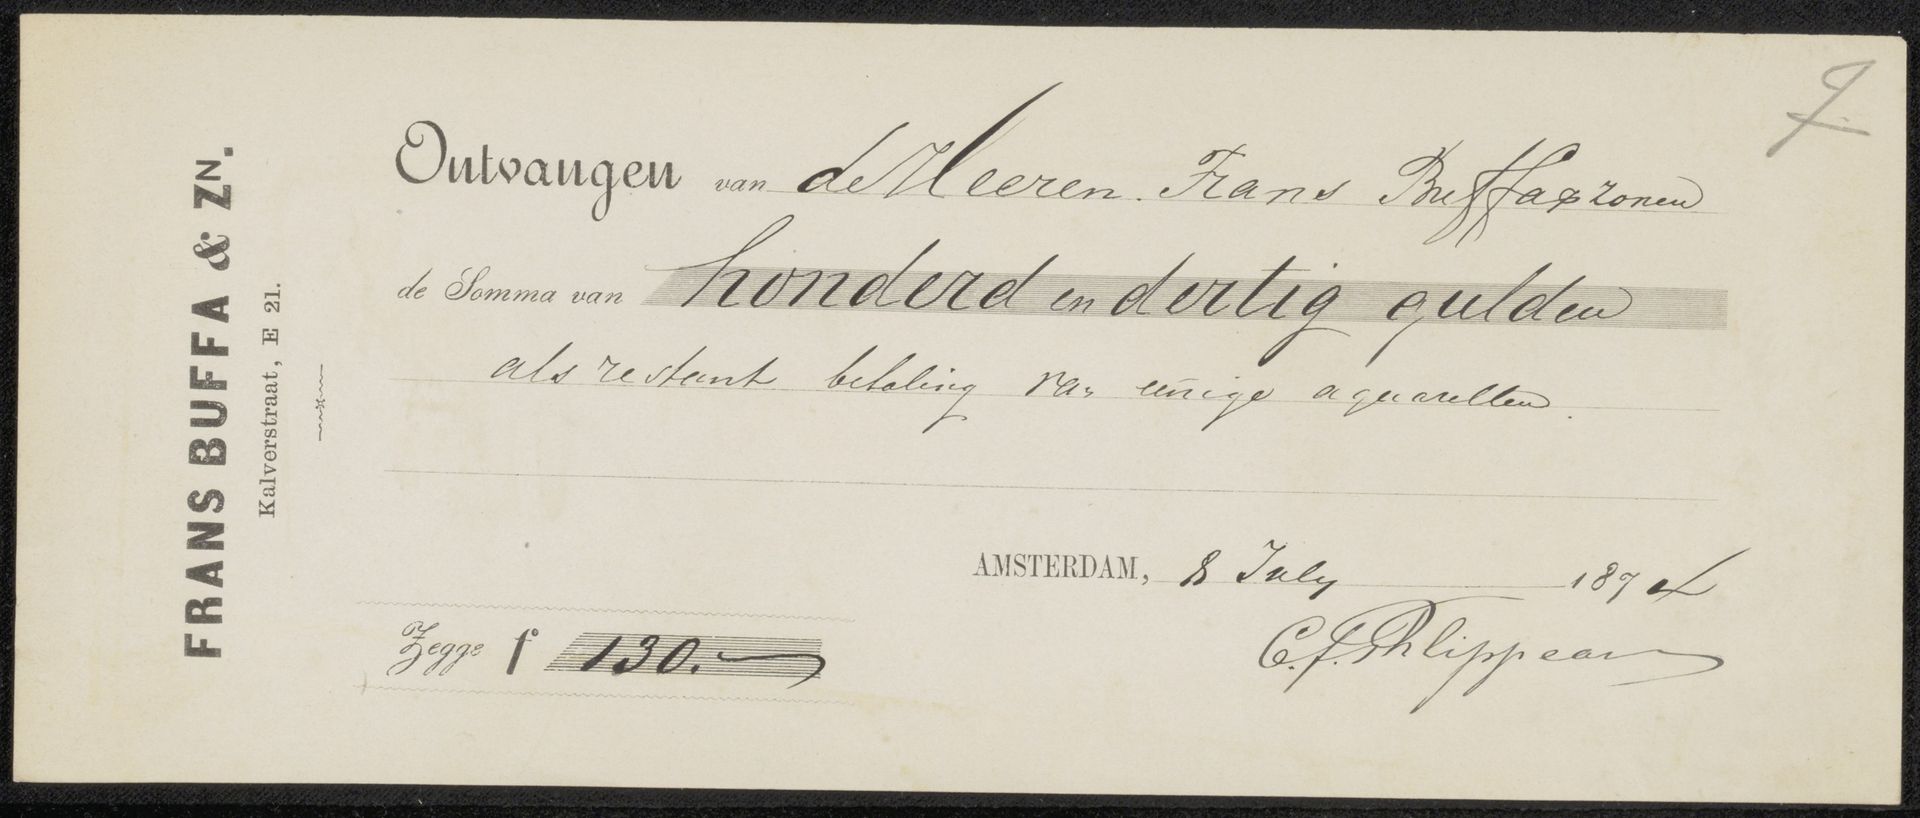 FRANS BUFFA & ZN.
Kalverstraat, E 21.
Ontvangen van de Heeren. Frans Buffa & zonen
de Somma van honderd en dertig gulden
als restant betaling van eenige aquarellen.
AMSTERDAM, 8 July 1874
Zegge fo 130.—
C. f. Phlippeau